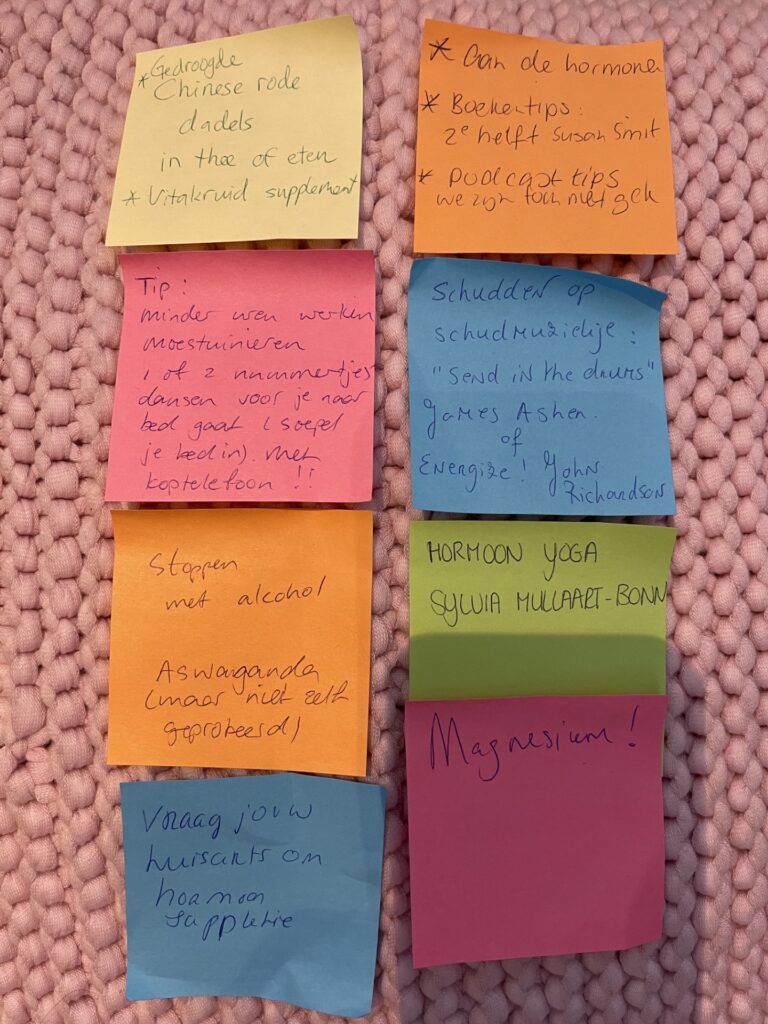 * Gedroogde
Chinese rode
dadels
in thee of eten
* Vitakruid supplement
* Aan de hormonen
* Boekentips:
2e helft Susan Smit
* Podcast tips
we zijn toch niet gek
Tip:
minder uren werken
moestuinieren
1 of 2 nummertjes
dansen voor je naar
bed gaat (soepel
je bed in). Met
koptelefoon!!
Schudden op
schudmuziekje:
"Send in the drums"
James Asher.
of
Energize! John
Richardson
Stoppen
met alcohol
Aswaganda
(maar niet zelf
geprobeerd)
HORMOON YOGA
SYLVIA MULLAART-BONN
Magnesium!
Vraag jouw
huisarts om
hormon
suppletie